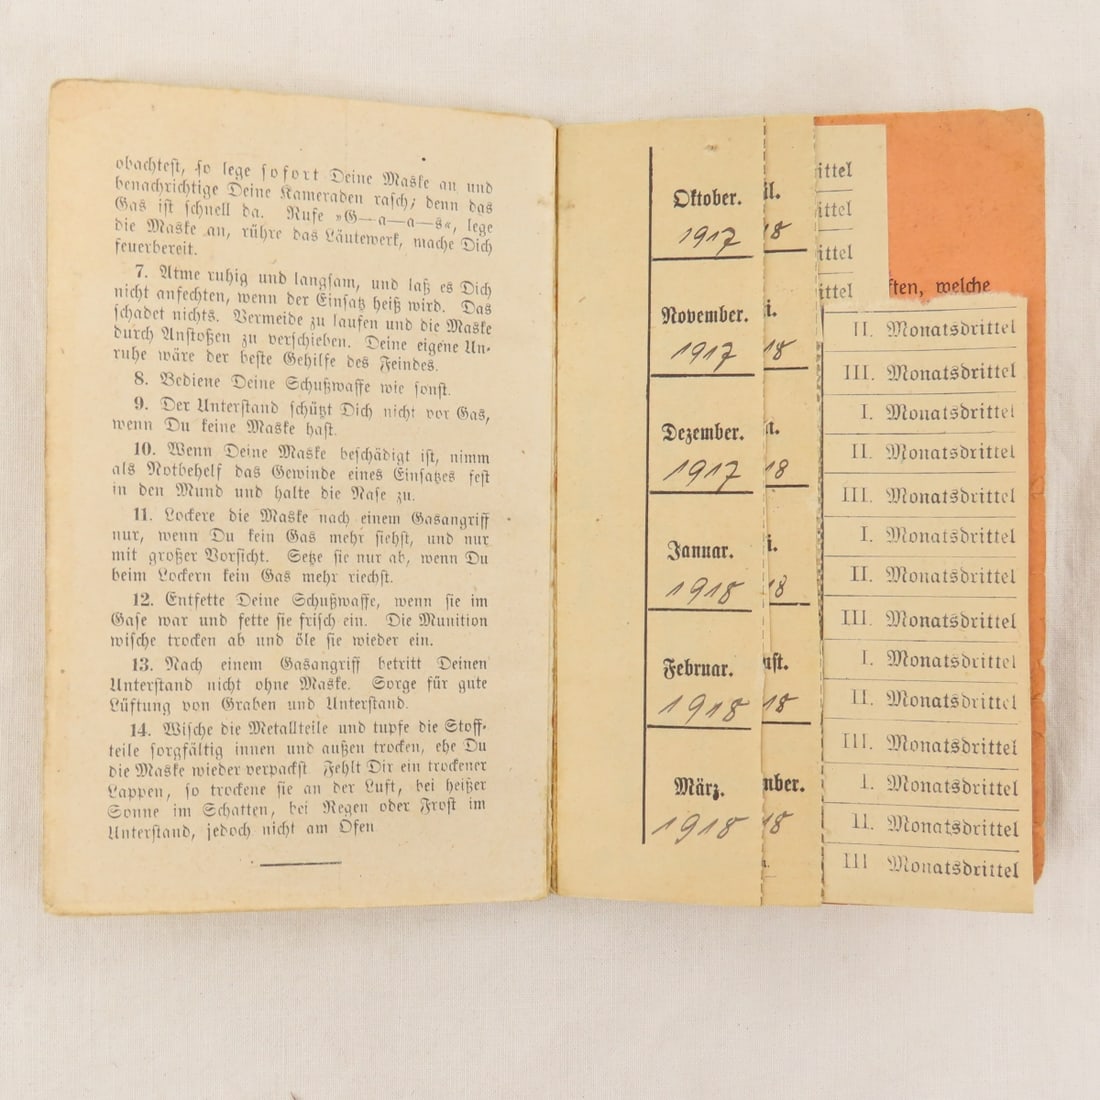 obachtest, so lege sofort Deine Maske an und
benachrichtige Deine Kameraden rasch; denn das
Gas ist schnell da. Rufe »G—a—a—s«, lege
die Maske an, rühre das Läutewerk, mache Dich
feuerbereit.
7. Atme ruhig und langsam, und laß es Dich
nicht anfechten, wenn der Einsatz heiß wird. Das
schadet nichts. Vermeide zu laufen und die Maske
durch Anstoßen zu verschieben. Deine eigene Un-
ruhe wäre der beste Gehilfe des Feindes.
8. Bediene Deine Schußwaffe wie sonst.
9. Der Unterstand schützt Dich nicht vor Gas,
wenn Du keine Maske hast.
10. Wenn Deine Maske beschädigt ist, nimm
als Notbehelf das Gewinde eines Einsatzes fest
in den Mund und halte die Nase zu.
11. Lockere die Maske nach einem Gasangriff
nur, wenn Du kein Gas mehr siehst, und nur
mit großer Vorsicht. Setze sie nur ab, wenn Du
beim Lockern kein Gas mehr riechst.
12. Entfette Deine Schußwaffe, wenn sie im
Gase war und fette sie frisch ein. Die Munition
wische trocken ab und öle sie wieder ein.
13. Nach einem Gasangriff betritt Deinen
Unterstand nicht ohne Maske. Sorge für gute
Lüftung von Graben und Unterstand.
14. Wische die Metallteile und tupfe die Stoff-
teile sorgfältig innen und außen trocken, ehe Du
die Maske wieder verpackst. Fehlt Dir ein trockener
Lappen, so trockene sie an der Luft, bei heißer
Sonne im Schatten, bei Regen oder Frost im
Unterstand, jedoch nicht am Ofen
Oktober.
1917
November.
1917
Dezember.
1917
Januar.
1918
Februar.
1918
März.
1918
il.
18
i.
18
18
i.
18
ust.
18
mber.
18
drittel
ittel
ittel
ittel
ften, welche
II. Monatsdrittel
III. Monatsdrittel
I. Monatsdrittel
II. Monatsdrittel
III. Monatsdrittel
I. Monatsdrittel
II. Monatsdrittel
III. Monatsdrittel
I. Monatsdrittel
II. Monatsdrittel
III. Monatsdrittel
I. Monatsdrittel
II. Monatsdrittel
III Monatsdrittel